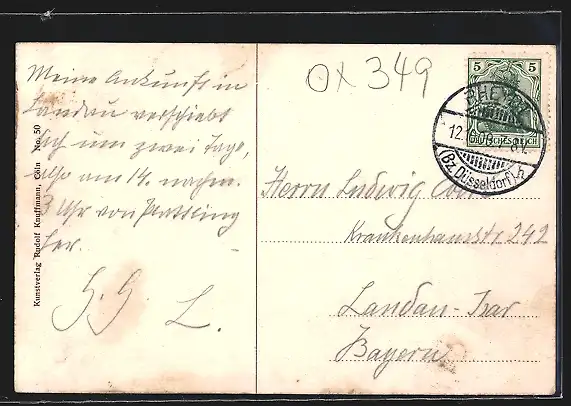 Meine Ankunft in
Landau verschiebt
sich um zwei Tage,
also am 14. nachm.
3 Uhr von Plattling
her.
L.
Kunstverlag Rudolf Kauffmann, Cöln No. 50
OX 349
5 5
DEUTSCHES REICH
RHEYDT
12.
(Bz. Düsseldorf)
Herrn Ludwig
Krankenhausstr 242
Landau-Isar
Bayern